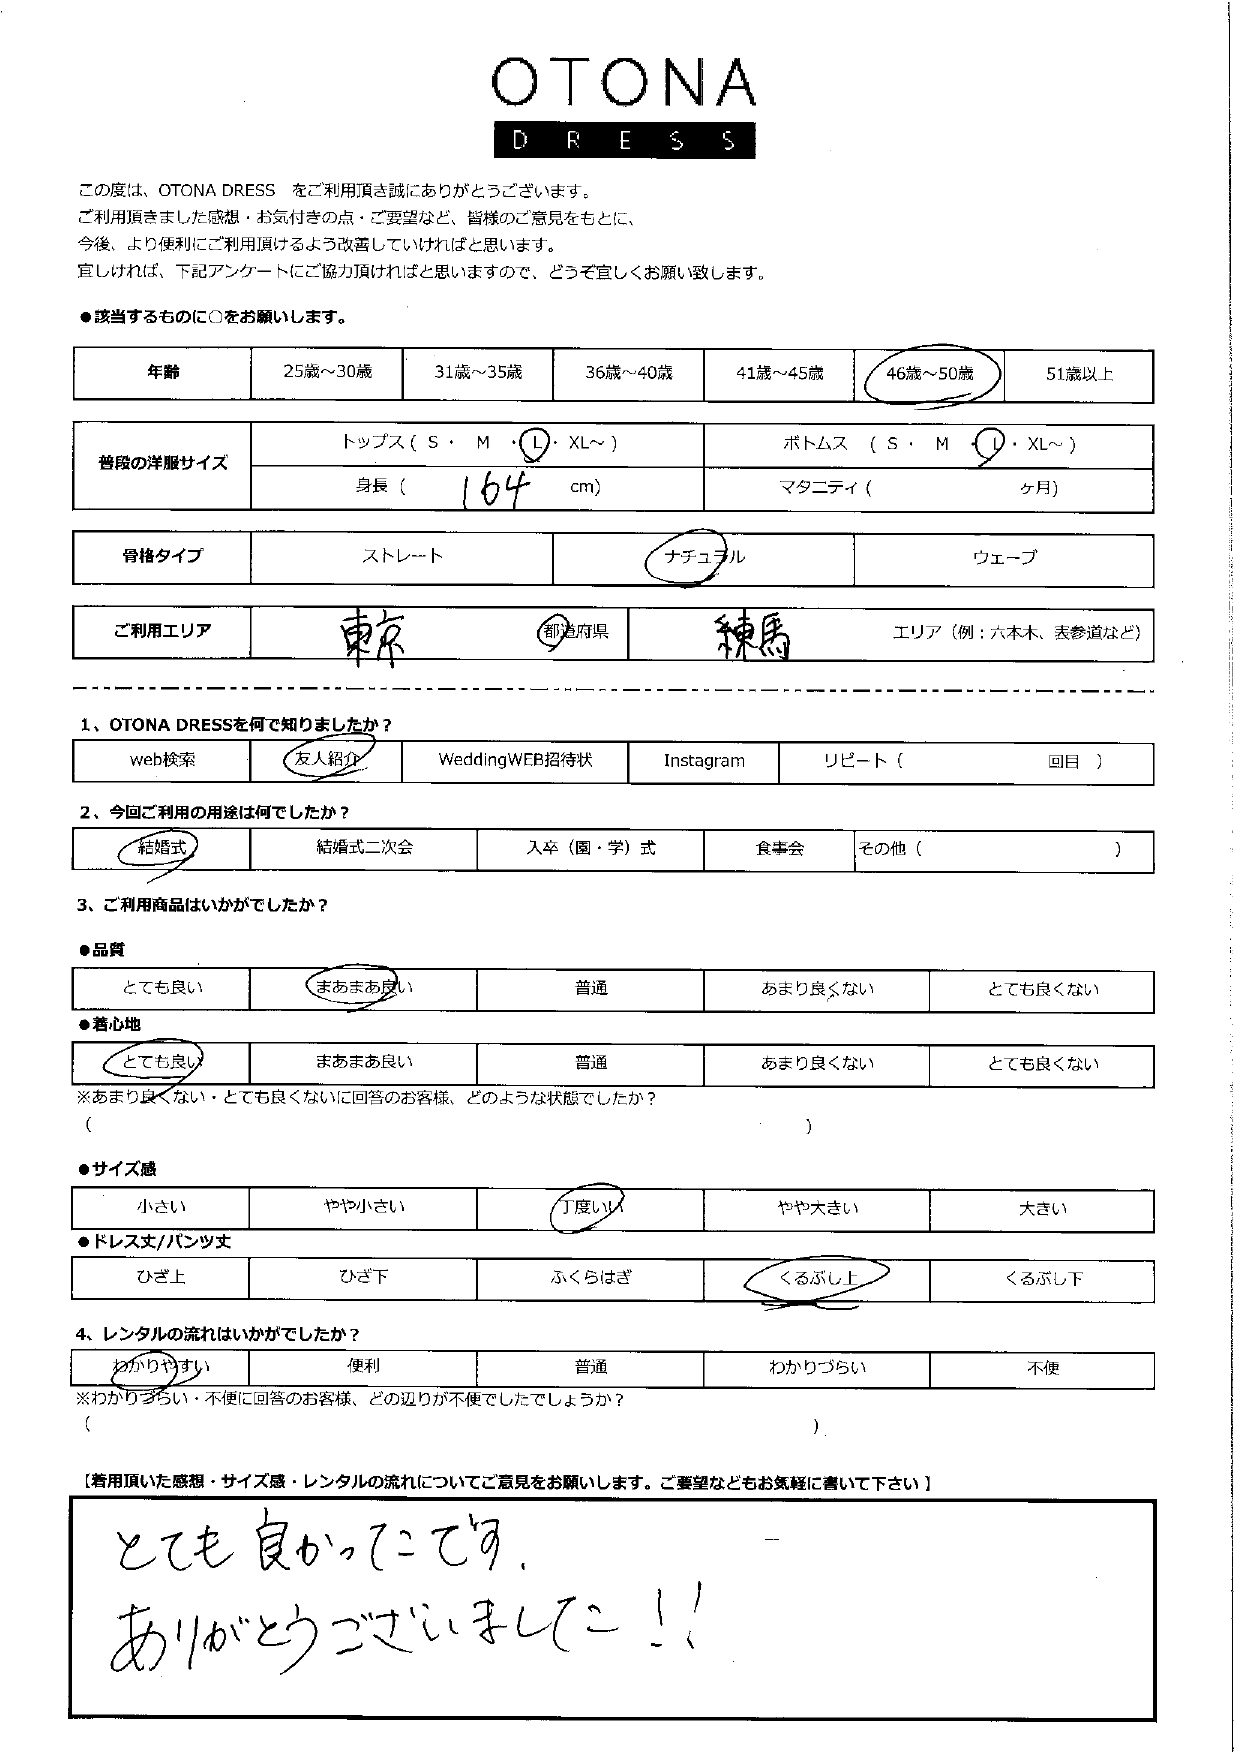 OTONA
DRESS
この度は、OTONA DRESS をご利用頂き誠にありがとうございます。
ご利用頂きました感想・お気付きの点・ご要望など、皆様のご意見をもとに、
今後、より便利にご利用頂けるよう改善していければと思います。
宜しければ、下記アンケートにご協力頂ければと思いますので、どうぞ宜しくお願い致します。
●該当するものに○をお願いします。
年齢 25歳～30歳 31歳～35歳 36歳～40歳 41歳～45歳 46歳～50歳 51歳以上
普段の洋服サイズ トップス ( S ・ M ・ L ・ XL～ ) ボトムス ( S ・ M ・ L ・ XL～ )
身長 ( 164 cm) マタニティ ( ケ月)
骨格タイプ ストレート ナチュラル ウェーブ
ご利用エリア 東京 都道府県 練馬 エリア（例：六本木、表参道など）
1、OTONA DRESSを何で知りましたか？
web検索 友人紹介 WeddingWEB招待状 Instagram リピート（ 回目 ）
2、今回ご利用の用途は何でしたか？
結婚式 結婚式二次会 入卒（園・学）式 食事会 その他（ ）
3、ご利用商品はいかがでしたか？
●品質
とても良い まあまあ良い 普通 あまり良くない とても良くない
●着心地
とても良い まあまあ良い 普通 あまり良くない とても良くない
※あまり良くない・とても良くないに回答のお客様、どのような状態でしたか？
（ ）
●サイズ感
小さい やや小さい 丁度いい やや大きい 大きい
●ドレス丈/パンツ丈
ひざ上 ひざ下 ふくらはぎ くるぶし上 くるぶし下
4、レンタルの流れはいかがでしたか？
わかりやすい 便利 普通 わかりづらい 不便
※わかりづらい・不便に回答のお客様、どの辺りが不便でしたでしょうか？
（ ）
【着用頂いた感想・サイズ感・レンタルの流れについてご意見をお願いします。ご要望などもお気軽に書いて下さい】
とても良かったです.
ありがとうございました!!